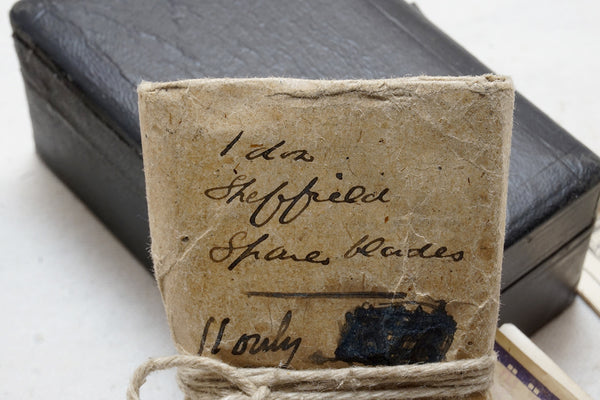 1 doz
Sheffield
Spare blades
11 only